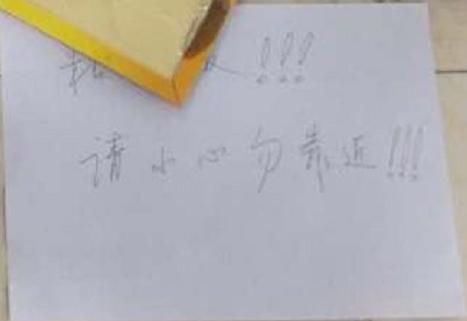 !!!
请小心勿靠近!!!